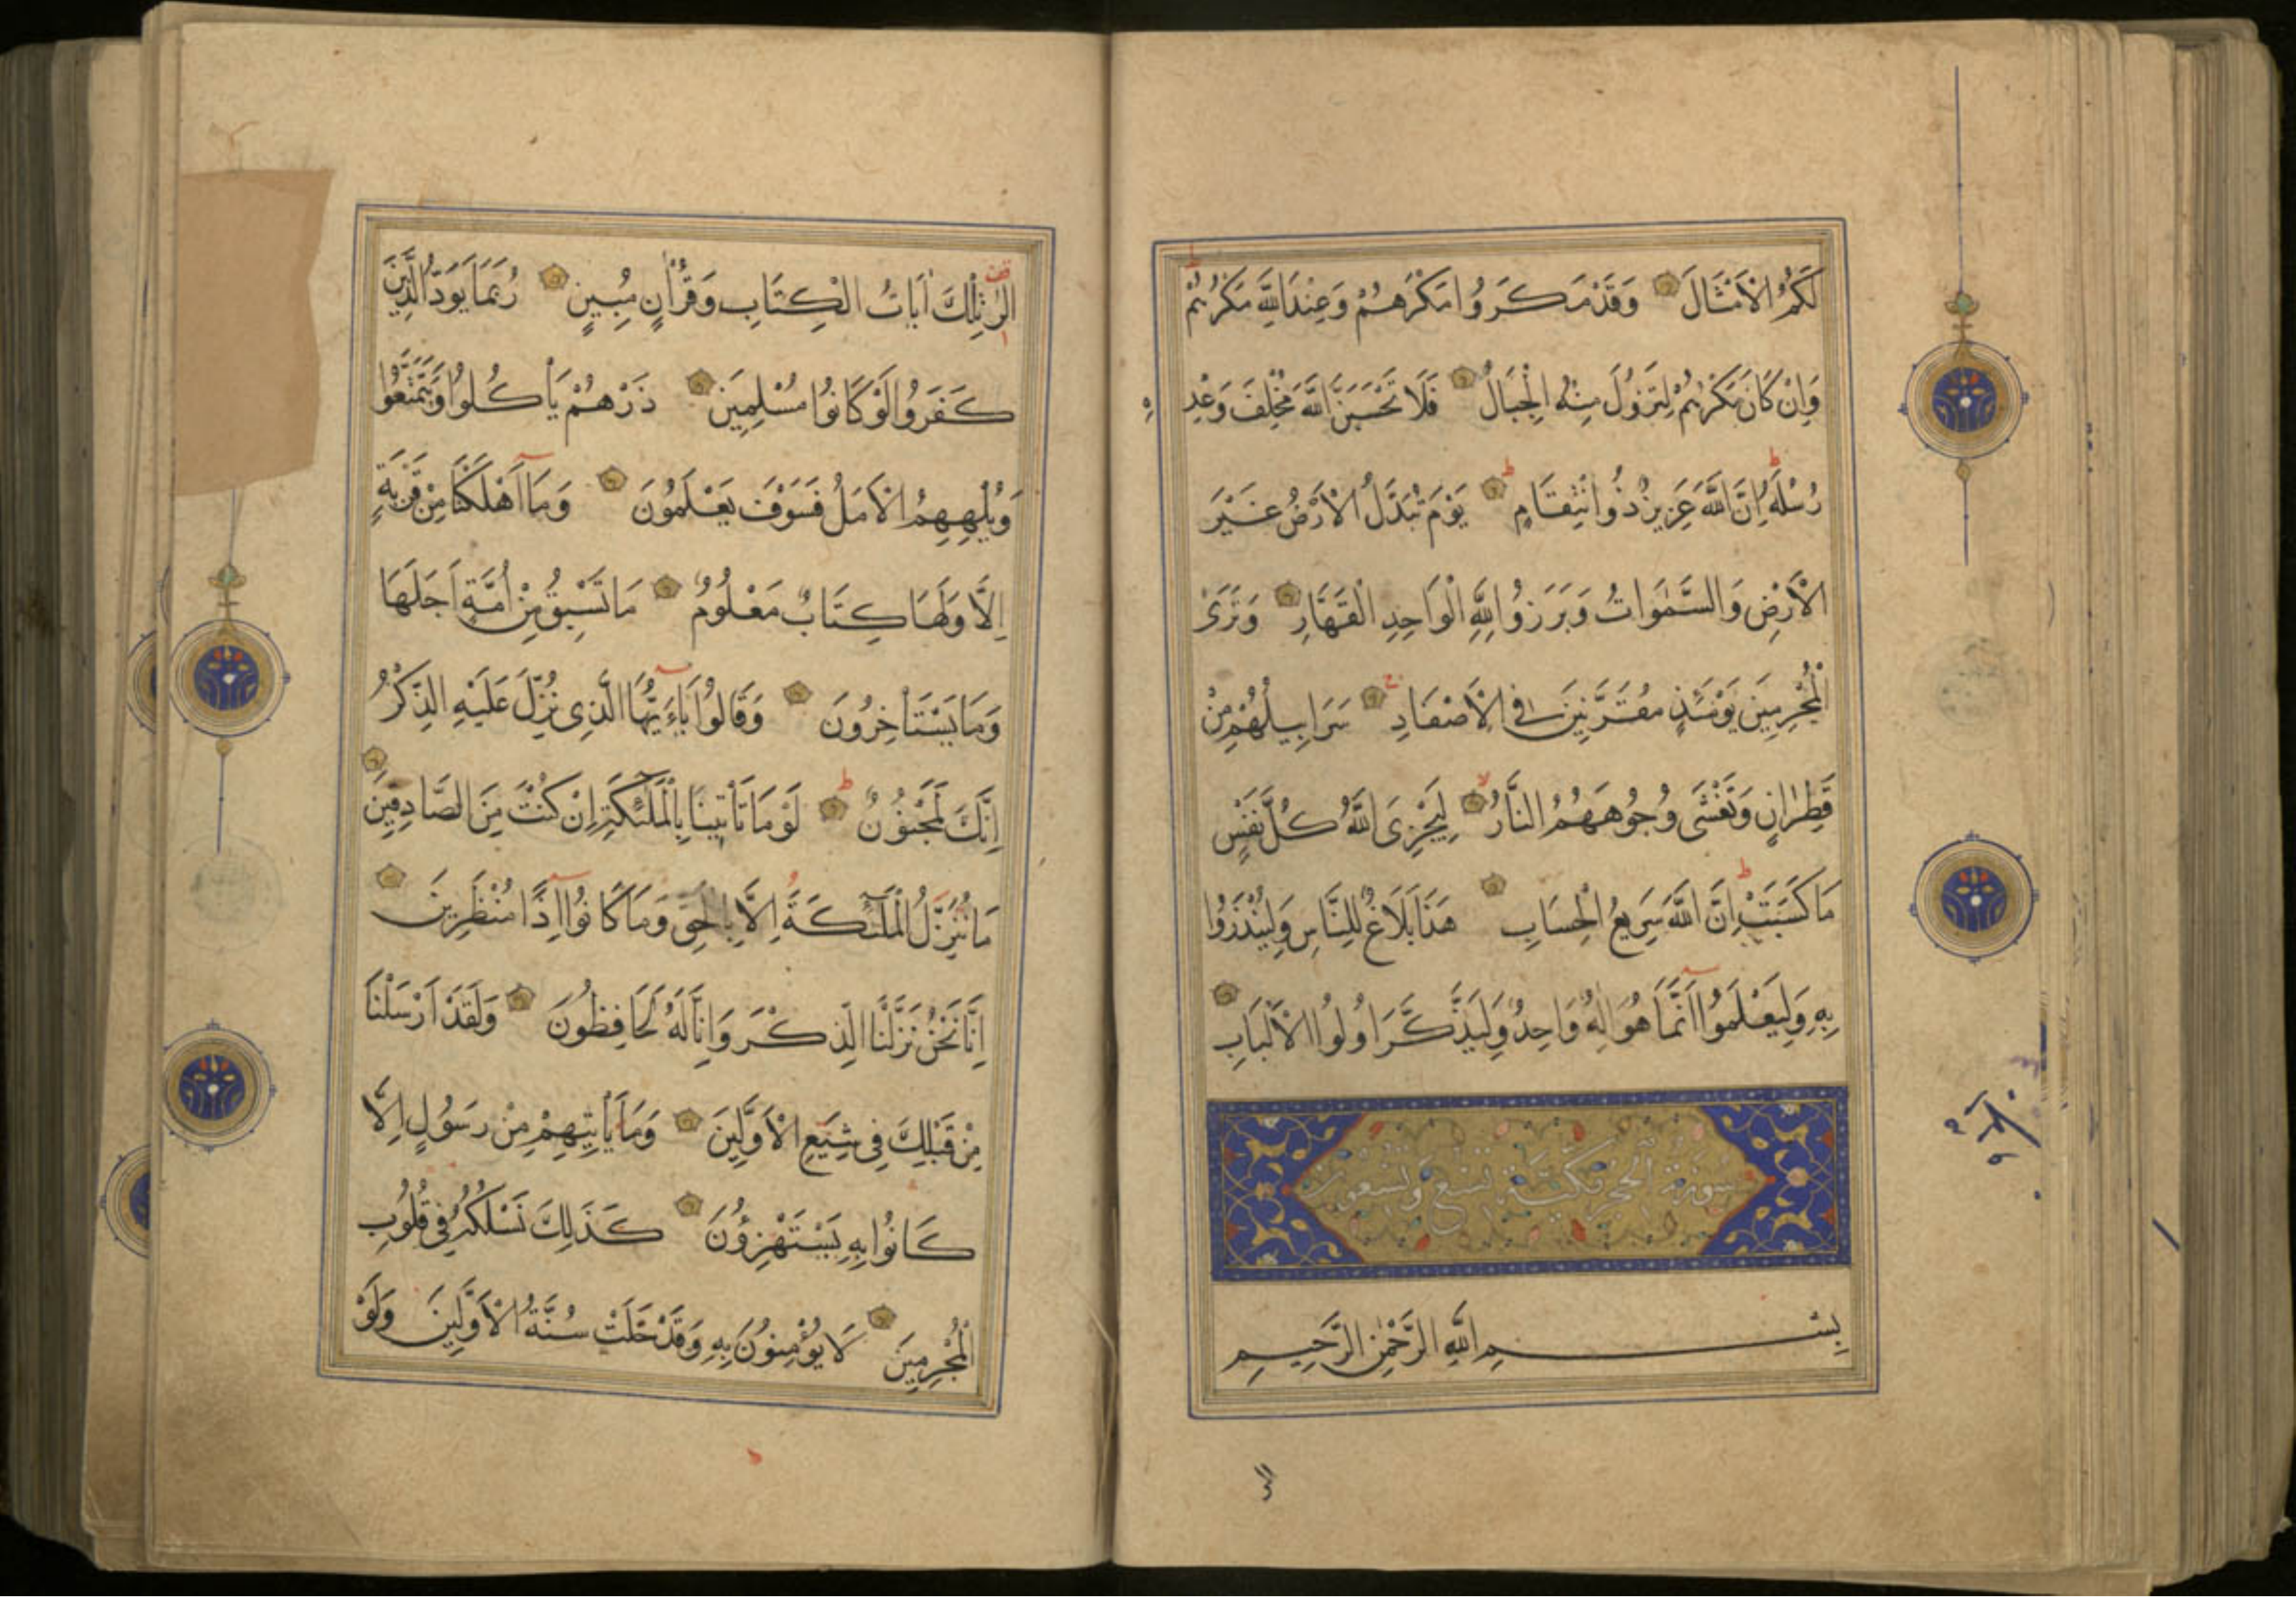 لَكُمُ الْأَمْثَالَ وَقَدْ مَكَرُوا مَكْرَهُمْ وَعِنْدَ اللَّهِ مَكْرُهُمْ
وَاِنْ كَانَ مَكْرُهُمْ لِتَزُولَ مِنْهُ الْجِبَالُ فَلَا تَحْسَبَنَّ اللَّهَ مُخْلِفَ وَعْدِهِ
رُسُلَهُ اِنَّ اللَّهَ عَزِيزٌ ذُو انْتِقَامٍ يَوْمَ تُبَدَّلُ الْاَرْضُ غَيْرَ
الْاَرْضِ وَالسَّمٰوَاتُ وَبَرَزُوا لِلَّهِ الْوَاحِدِ الْقَهَّارِ وَتَرَى
الْمُجْرِمِينَ يَوْمَئِذٍ مُقَرَّنِينَ فِي الْاَصْفَادِ سَرَابِيلُهُمْ مِنْ
قَطِرَانٍ وَتَغْشَى وُجُوهَهُمُ النَّارُ لِيَجْزِيَ اللَّهُ كُلَّ نَفْسٍ
مَا كَسَبَتْ اِنَّ اللَّهَ سَرِيعُ الْحِسَابِ هَذَا بَلَاغٌ لِلنَّاسِ وَلِيُنْذَرُوا
بِهِ وَلِيَعْلَمُوا اَنَّمَا هُوَ اِلٰهٌ وَاحِدٌ وَلِيَذَّكَّرَ اُولُوا الْاَلْبَابِ
سورة الحجر مكية تسع وتسعون
بِسْمِ اللَّهِ الرَّحْمٰنِ الرَّحِيمِ
الٓرٰ تِلْكَ اٰيَاتُ الْكِتَابِ وَقُرْاٰنٍ مُبِينٍ رُبَمَا يَوَدُّ الَّذِينَ
كَفَرُوا لَوْ كَانُوا مُسْلِمِينَ ذَرْهُمْ يَأْكُلُوا وَيَتَمَتَّعُوا
وَيُلْهِهِمُ الْاَمَلُ فَسَوْفَ يَعْلَمُونَ وَمَا اَهْلَكْنَا مِنْ قَرْيَةٍ
اِلَّا وَلَهَا كِتَابٌ مَعْلُومٌ مَا تَسْبِقُ مِنْ اُمَّةٍ اَجَلَهَا
وَمَا يَسْتَأْخِرُونَ وَقَالُوا يَا اَيُّهَا الَّذِي نُزِّلَ عَلَيْهِ الذِّكْرُ
اِنَّكَ لَمَجْنُونٌ لَوْ مَا تَأْتِينَا بِالْمَلٰئِكَةِ اِنْ كُنْتَ مِنَ الصَّادِقِينَ
مَا نُنَزِّلُ الْمَلٰئِكَةَ اِلَّا بِالْحَقِّ وَمَا كَانُوا اِذًا مُنْظَرِينَ
اِنَّا نَحْنُ نَزَّلْنَا الذِّكْرَ وَاِنَّا لَهُ لَحَافِظُونَ وَلَقَدْ اَرْسَلْنَا
مِنْ قَبْلِكَ فِي شِيَعِ الْاَوَّلِينَ وَمَا يَأْتِيهِمْ مِنْ رَسُولٍ اِلَّا
كَانُوا بِهِ يَسْتَهْزِؤُنَ كَذَلِكَ نَسْلُكُهُ فِي قُلُوبِ
الْمُجْرِمِينَ لَا يُؤْمِنُونَ بِهِ وَقَدْ خَلَتْ سُنَّةُ الْاَوَّلِينَ وَلَوْ